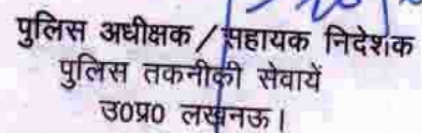 पुलिस अधीक्षक / सहायक निदेशक
पुलिस तकनीकी सेवायें
उ०प्र० लखनऊ।